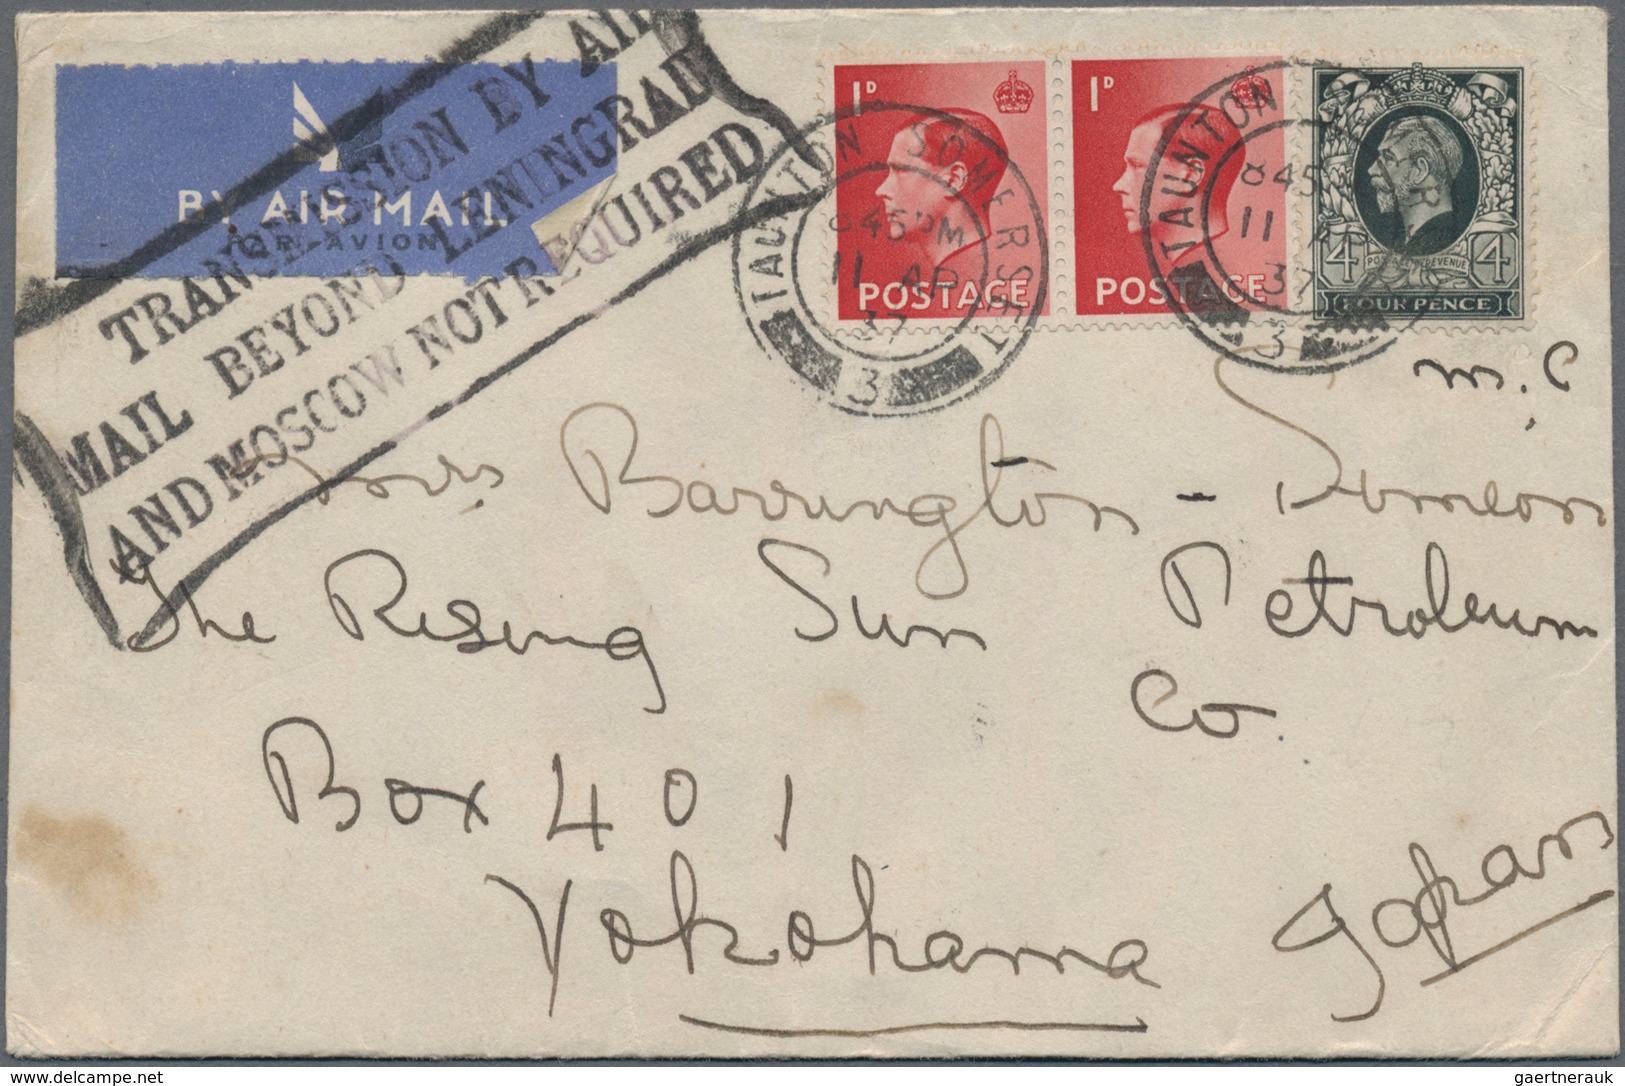 BY AIR MAIL
PAR AVION
TRANSMISSION BY AIR
MAIL BEYOND LENINGRAD
AND MOSCOW NOT REQUIRED
1D
POSTAGE
1D
POSTAGE
4 POSTAGE REVENUE 4
FOUR PENCE
TAUNTON SOMERSET
845 PM
11 AP
37
3
TAUNTON
845
11 AP
37
3
m.c
Mrs Barrington - Simeon
The Rising Sun Petroleum
Co.
Box 401
Yokohama Japan
delcampe.net
gaertnerauk